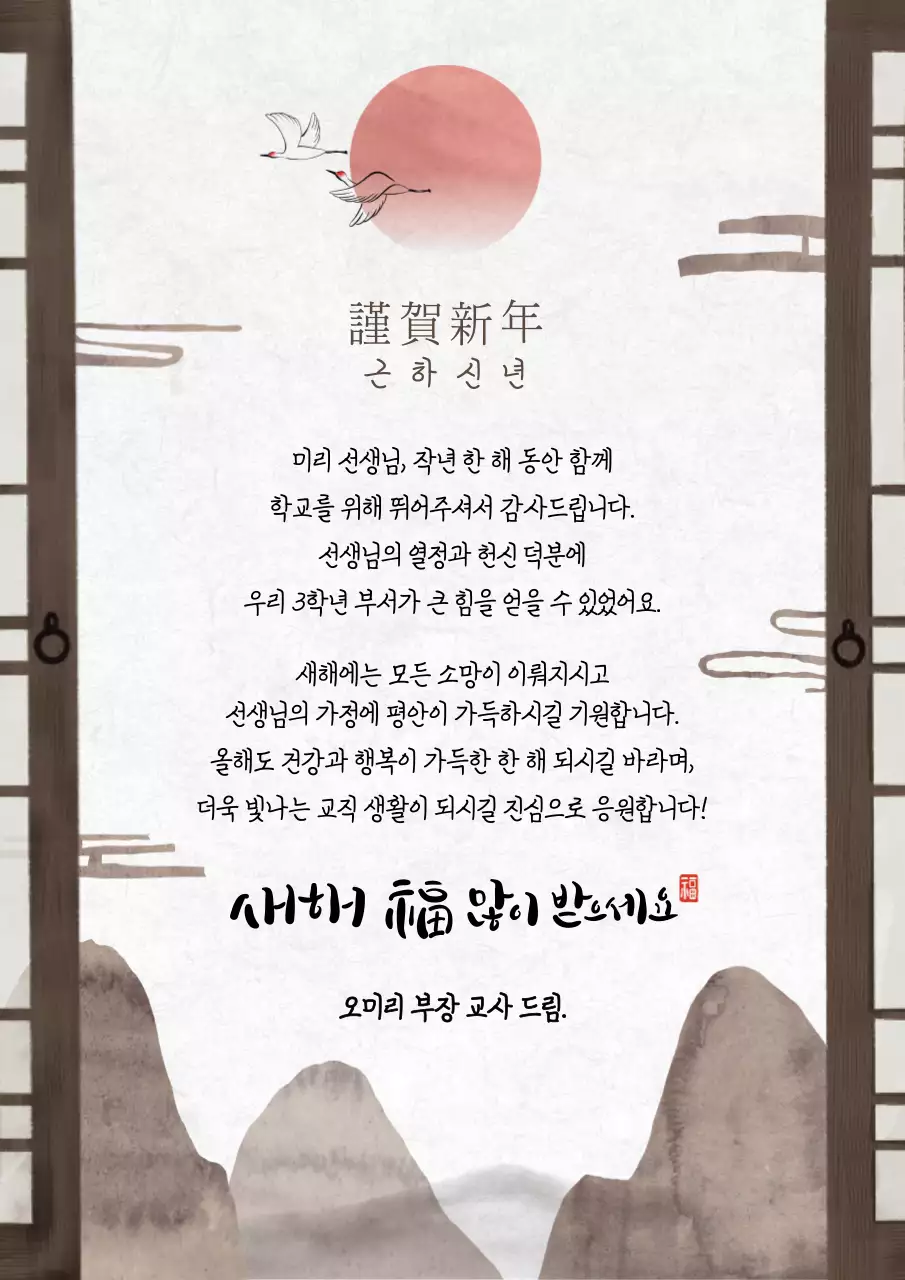 謹賀新年
근하신년
미리 선생님, 작년 한 해 동안 함께
학교를 위해 뛰어주셔서 감사드립니다.
선생님의 열정과 헌신 덕분에
우리 3학년 부서가 큰 힘을 얻을 수 있었어요.
새해에는 모든 소망이 이뤄지시고
선생님의 가정에 평안이 가득하시길 기원합니다.
올해도 건강과 행복이 가득한 한 해 되시길 바라며,
더욱 빛나는 교직 생활이 되시길 진심으로 응원합니다!
새해 福 많이 받으세요
福
오미리 부장 교사 드림.